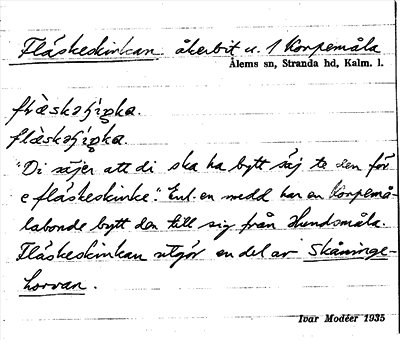 Fläskeskinkan åkerbit u. 1 Korpemåla
Ålems sn, Stranda hd, Kalm. l.
flä̀skəʃiŋka.
flä̀skəʃiŋka.
"Di säjer att di ska ha bytt säj te den för
e fläskeskinke". Enl. en medd har en Korpemå-
labonde bytt den till sig från Hundsmåla.
Fläskeskinkan utgör en del av Skåninge-
horvan.
Ivar Modéer 1935